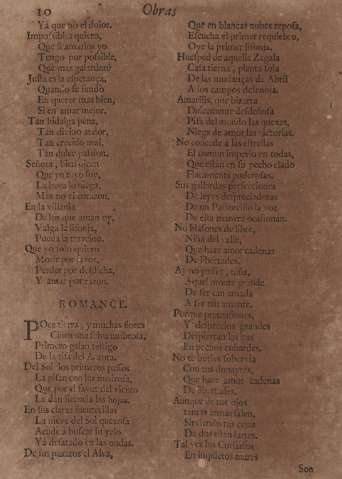 10 Obras
Ya que no el dolor.
Impossibles quiero,
Que si amarlos yo
Tengo por possible,
Que mas galardon?
Justa es la esperança,
Quando se rindo
En querer mas bien,
Si en amar mejor.
Tan hidalga pena,
Tan divino ardor,
Tan crecido mal,
Tan dulce passion.
Señora, bien dizen
Que yo soy
La boca lo niega,
Mas no el coraçon.
En la villania
De los que aman oy,
Valga la lisonja,
Pueda la traycion.
Que yo solo quiero
Morir por favor,
Penar por desdicha,
Y amar por razon.
ROMANCE.
POca tierra, y muchas flores
Ciñen una selva umbrosa,
Primero galan testigo
De la risa del Aurora.
Del Sol los primeros passos
La pisan con luz medrosa,
Que por el favor del viento
La dan licencia las hojas.
En sus claras fuentecillas
La nieve del Sol quexosa
Acude a buscar su yelo
Ya desatado en las ondas.
De sus paxaros el Alva,
Que en blancas nubes reposa,
Escucha el primer requiebro,
Oye la primer lisonja.
Huesped de aquella Zagala
Casa tierna, planta sola
De las mudanças de Abril
A los campos desenoja.
Amarilis, que bizarra
Dulcemente desdeñosa
Pisa burlando las quexas,
Niega de amor las victorias.
No concede a las estrellas
El comun imperio en todas,
Que estan en su pecho elado
Flacamente poderosas.
Sus gallardas perfecciones
De leyes de preciadoras
De un Parnacillo la voz
De esta manera ocasionan.
No blasones de libre,
Niña del valle,
Que haze amor cadenas
De libertades.
Ay no passes, tosa,
Aquel monte grande
De ser tan amada
A ser tan amante.
Porque pretensiones,
Y desprecios grandes
Despiertan los
En pechos cobardes.
No te burles sobervia
Con tus donayres,
Que haze amor cadenas
De libertades.
Aunque de tus ojos
tantas almas salen,
Sirviendo tus
De dos esta
Tal vez los Cursarios
En inquietos mares
Son